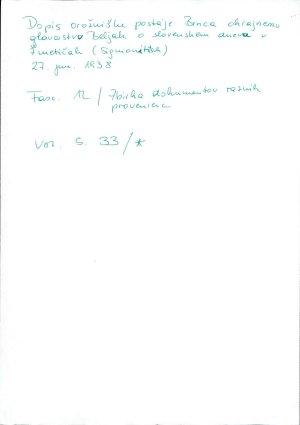 Dopis orožniške postaje Brnca okrajnemu
glavarstvu Beljak o slovenskem dnevu v
Zmotičah (Sigmontitsch)
27. jun. 1938
Fasc. 12 / Zbirka dokumentov raznih
provenienc
Vor. S. 33/*